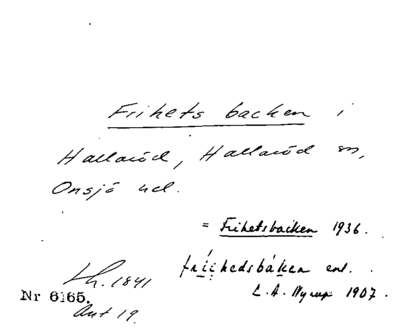 Frihets backen i
Hallaröd, Hallaröd sn,
Onsjö hd.
= Frihetsbacken 1936.
friihedsbåken enl.
L. A. Nyrup 1907.
Lh. 1841
Nr 6165.
Ant 19.